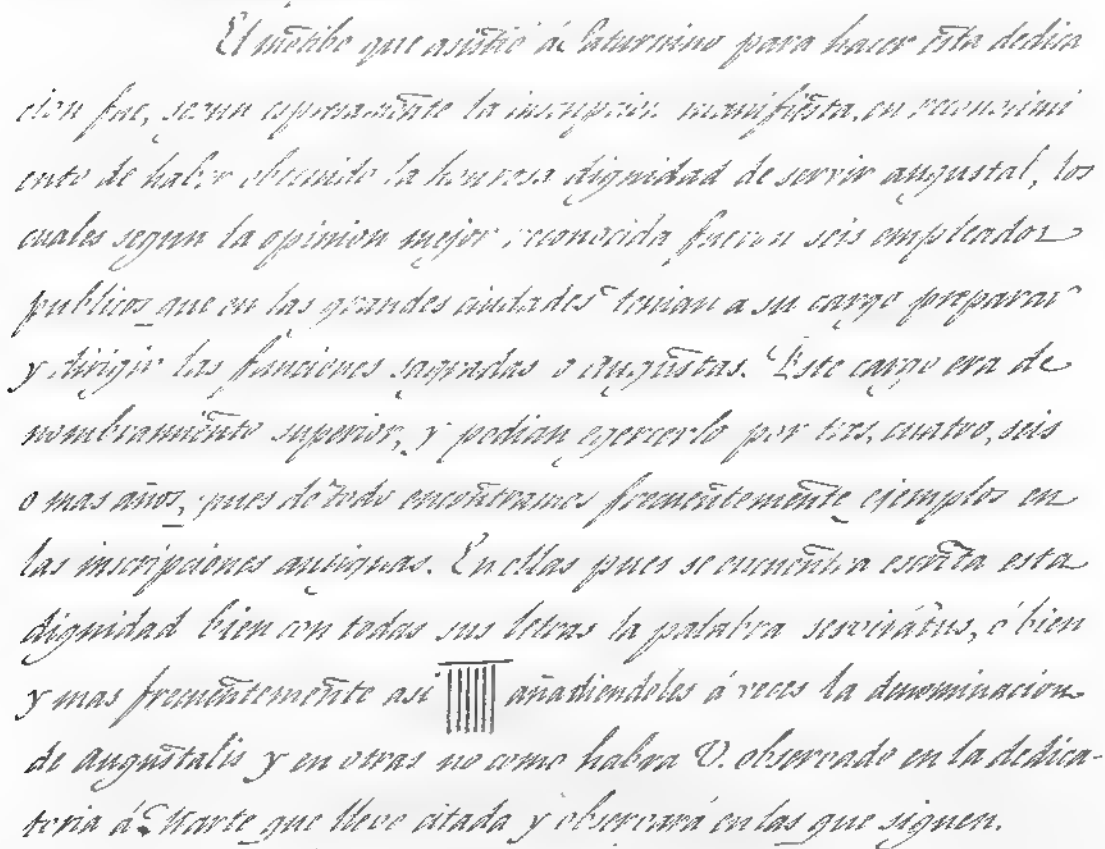 El motibo que asistió á Saturnino para hacer esta dedica
cion fue, segun espresamente la inscripcion manifiesta, en reconocimi
ento de haber obtenido la honrosa dignidad de sevvir augustal, los
cuales segun la opinion mejor reconocida fueron seis empleados
publicos que en las grandes ciudades tenian a su cargo preparar
y dirigir las funciones sagradas o augustas. Este cargo era de
nombramiento superior, y podian egercerlo por tres, cuatro, seis
o mas años, pues de todo encontramos frecuentemente ejemplos en
las inscripciones antiguas. En ellas pues se encuentra escrita esta
dignidad bien con todas sus letras la palabra sesvirátus, ó bien
y mas frecuentemente asi IIIIII añadiendoles á veces la denominacion
de augustalis y en otras no como habra V. observado en la dedica-
toria á Marte que llevo citada y observará en las que siguen.